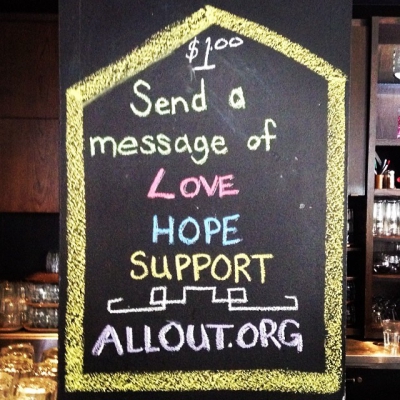 $1.00
Send a
message of
LOVE
HOPE
SUPPORT
ALLOUT.ORG